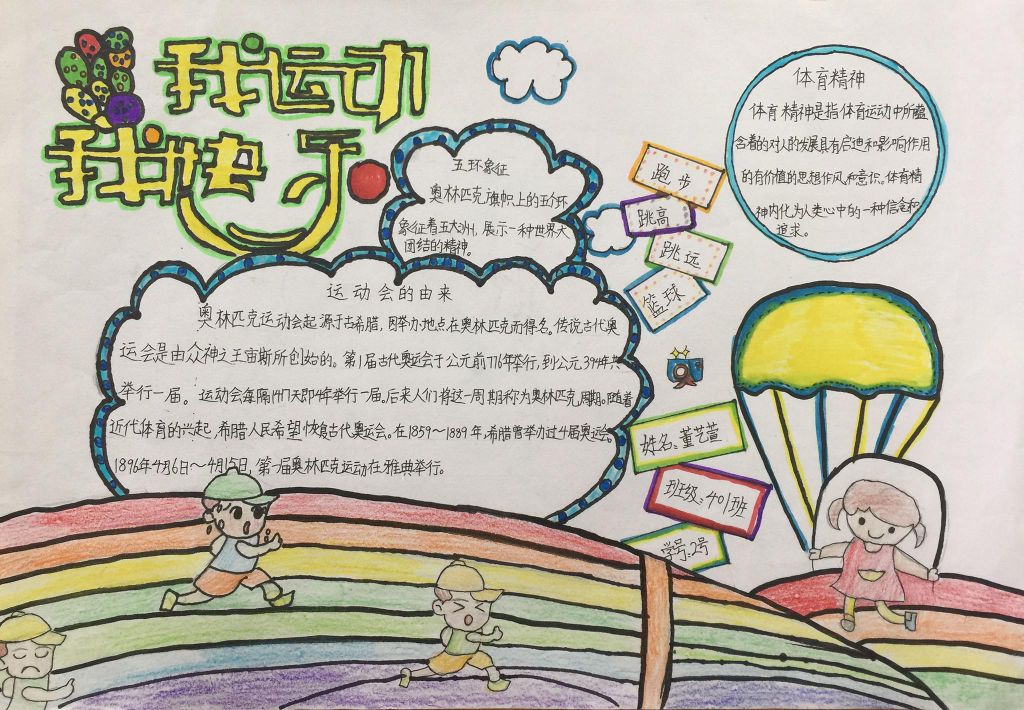 我运动
我快乐
五环象征
奥林匹克旗帜上的五个环
象征着五大洲，展示一种世界大
团结的精神。
跑步
跳高
跳远
篮球
体育精神
体育精神是指体育运动中所蕴
含着的对人的发展具有启迪和影响作用
的有价值的思想作风和意识。体育精
神内化为人类心中的一种信念和
追求。
运动会的由来
奥林匹克运动会起源于古希腊，因举办地点在奥林匹克而得名。传说古代奥
运会是由众神之王宙斯所创始的。第1届古代奥运会于公元前776年举行，到公元394年共
举行一届。运动会每隔1417天即4年举行一届。后来人们将这一周期称为奥林匹克周期。随着
近代体育的兴起，希腊人民希望恢复古代奥运会。在1859～1889年，希腊曾举办过4届奥运会。
1896年4月6日～4月15日，第一届奥林匹克运动在雅典举行。
姓名：董艺萱
班级：401班
学号：2号